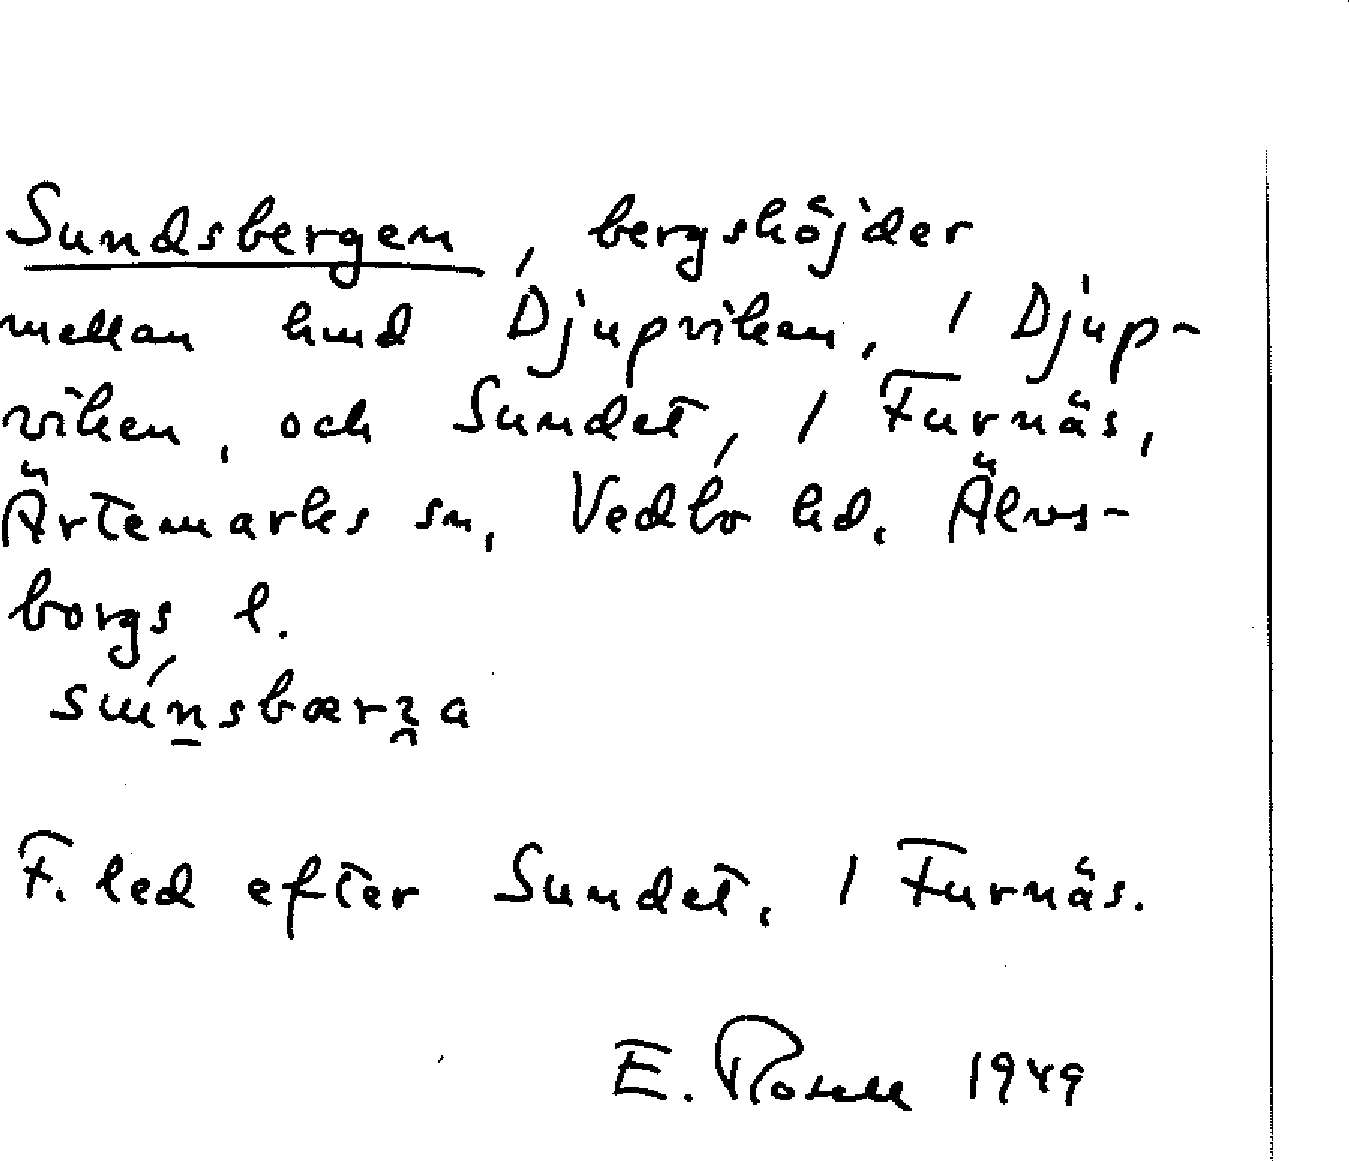 Sundsbergen, bergshöjder
mellan hmd Djupviken, 1 Djup-
viken, och Sundet, 1 Furnäs,
Ärtemarks sn, Vedbo hd. Älvs-
borgs l.
F. led efter Sundet, 1 Furnäs.
E. Rosell 1949